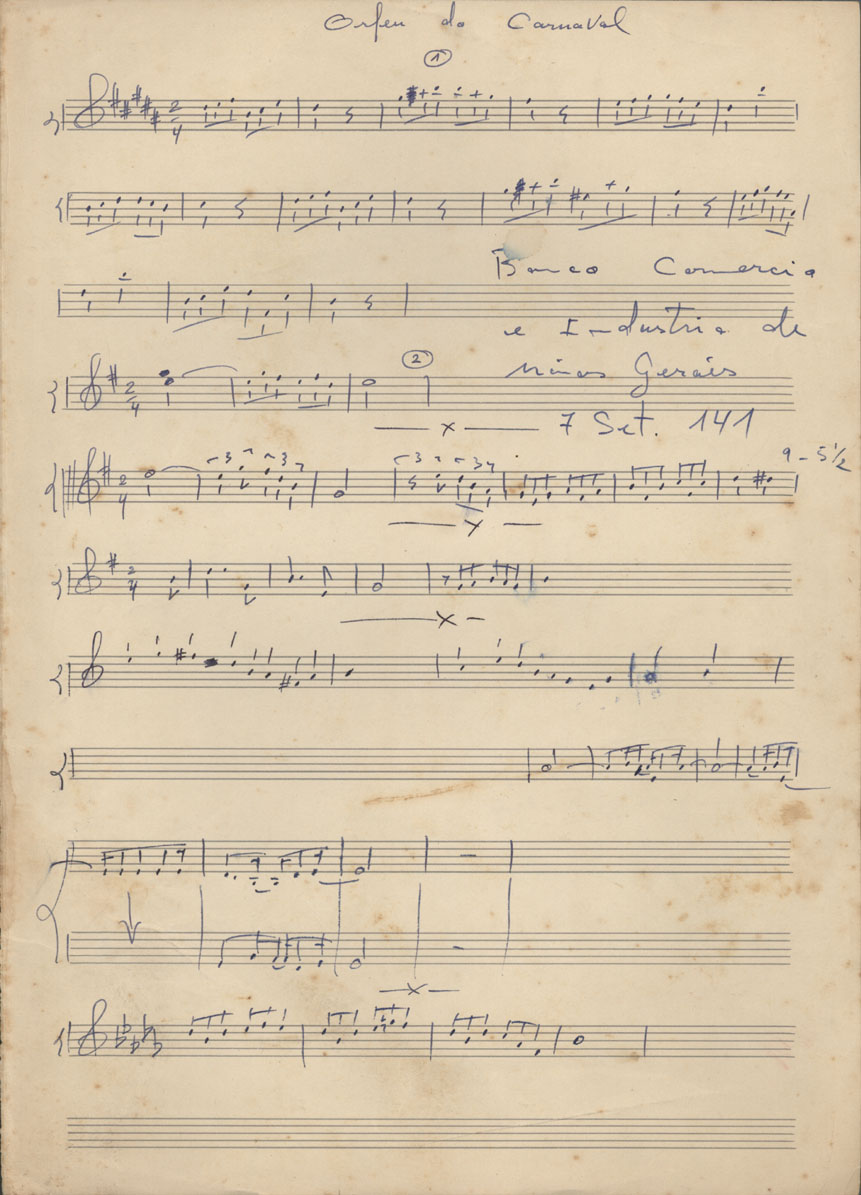 Orfeu do Carnaval
1
2/4
Banco Comercio
e Industria de
Minas Gerais
2
2/4
x 7 Set. 141
9 - 5 1/2
2/4
3 3 3 3
2/4
x
x